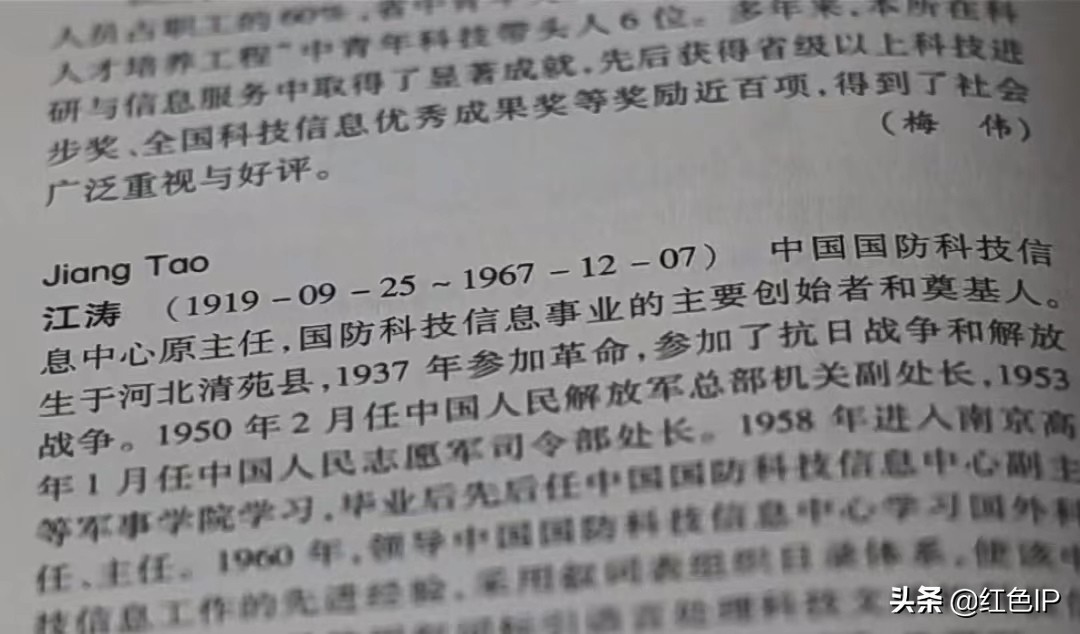 人员占职工的60%,省中青年
人才培养工程”中青年科技带头人6位。多年来,本所在科
研与信息服务中取得了显著成就,先后获得省级以上科技进
步奖、全国科技信息优秀成果奖等奖励近百项,得到了社会
广泛重视与好评。
(梅 伟)
Jiang Tao
江涛 (1919-09-25~1967-12-07) 中国国防科技信
息中心原主任,国防科技信息事业的主要创始者和奠基人。
生于河北清苑县,1937年参加革命,参加了抗日战争和解放
战争。1950年2月任中国人民解放军总部机关副处长,1953
年1月任中国人民志愿军司令部处长。1958年进入南京高
等军事学院学习,毕业后先后任中国国防科技信息中心副主
任、主任。1960年,领导中国国防科技信息中心学习国外科
技信息工作的先进经验,采用叙词表组织目录体系,使该中
头条 @红色IP